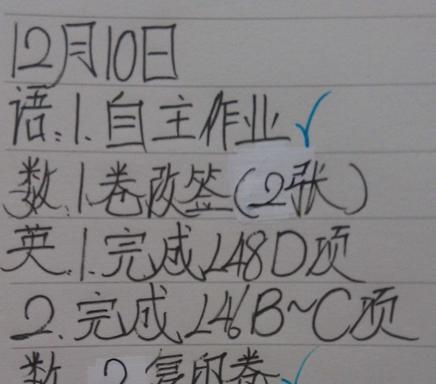 12月10日
语:1.自主作业✓
数.1.卷改签(2张)
英.1.完成L48D项
2.完成L46B~C项
数 2.复印卷✓